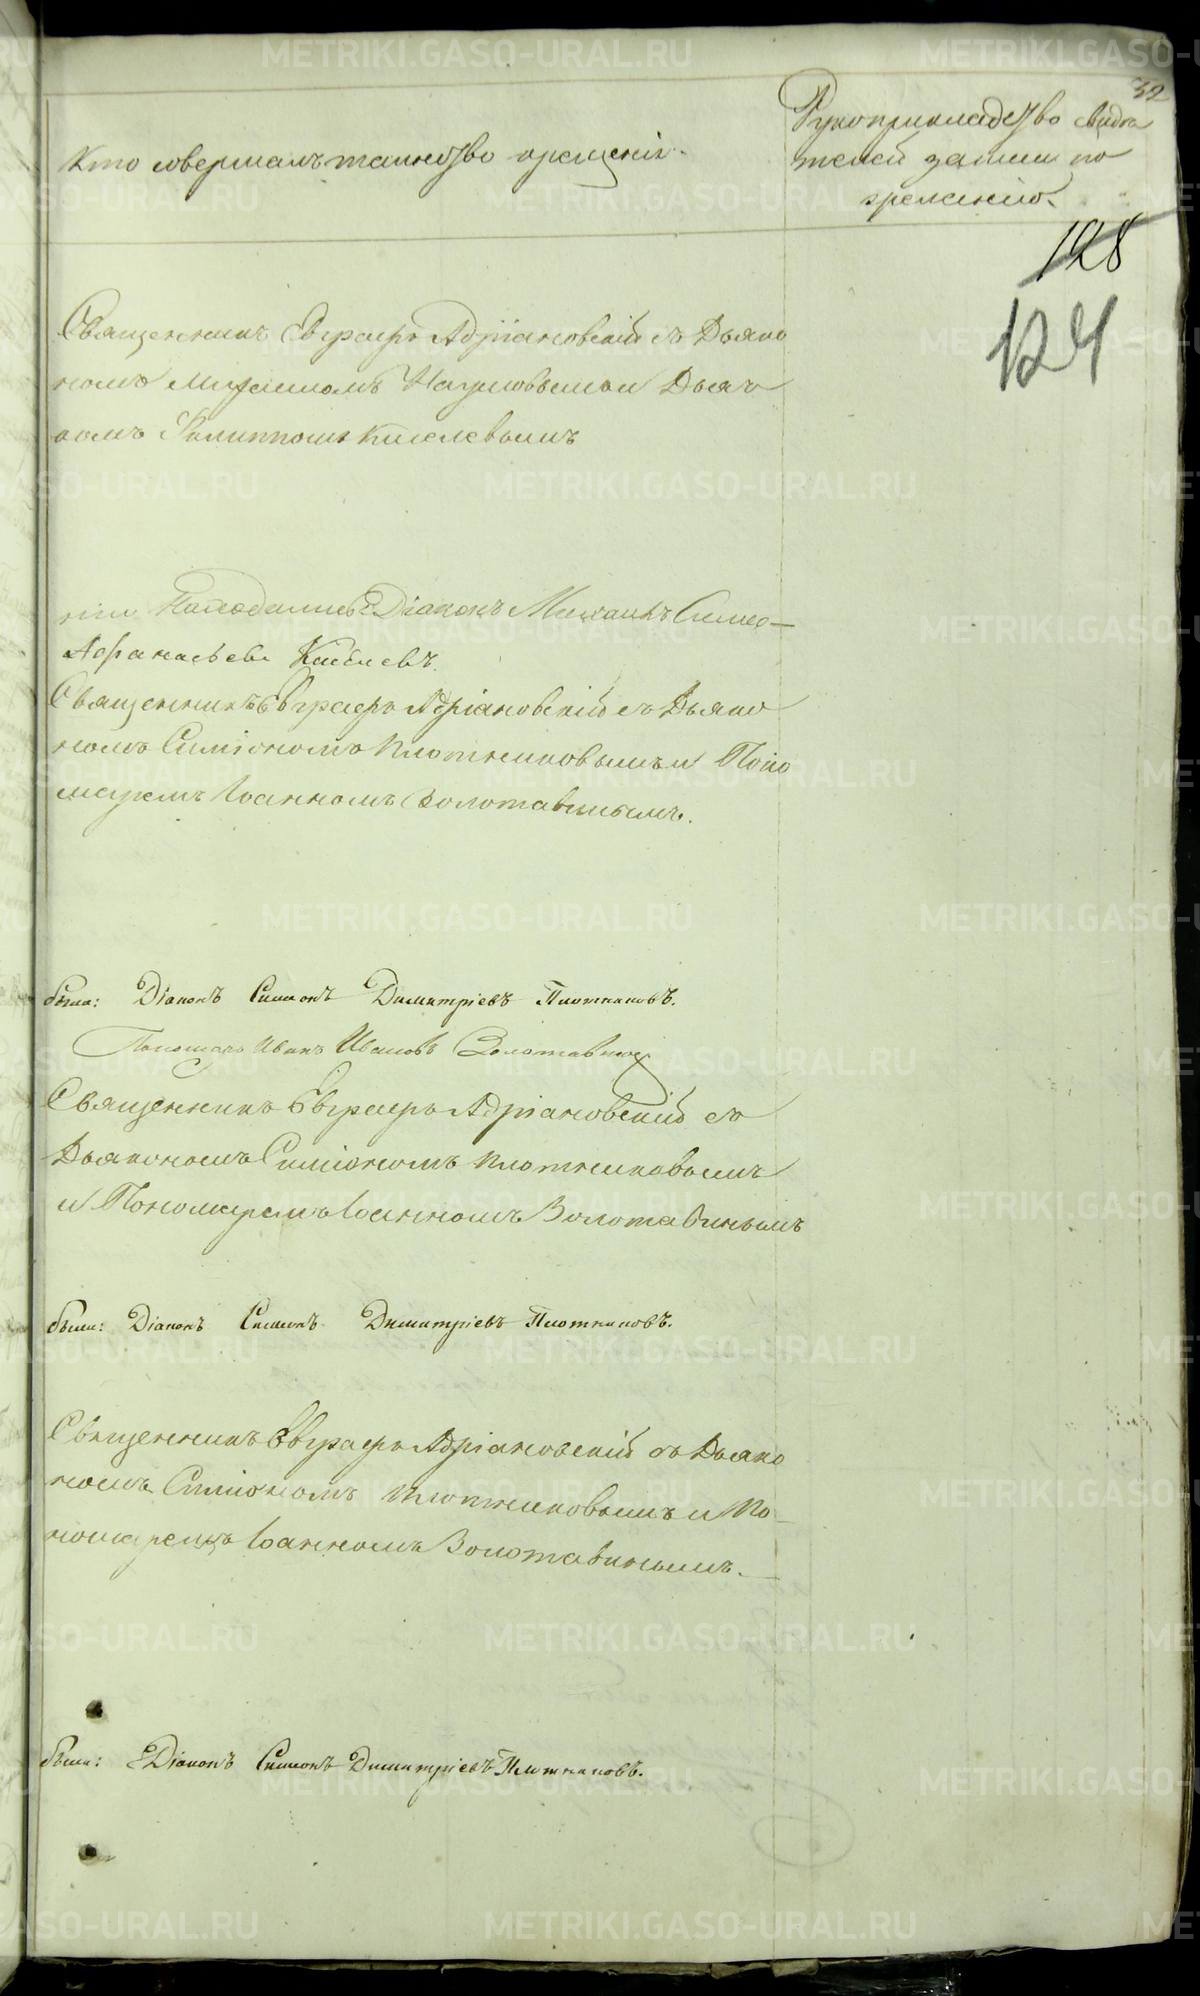 32
Кто совершалъ таинство крещенія.
Рукоприкладство свидѣ
телей записи по
желанію.
128
124
Священникъ Евграфъ Адріановскій съ Дьяко
номъ Михаиломъ Наумовымъ и Дьяч
комъ Филиппомъ Киселевымъ
Діаконъ Михаилъ
Афанасьевъ Киселевъ.
Священникъ Евграфъ Адріановскій съ Дьяко
номъ Симіономъ Плотниковымъ и Поно
маремъ Іоанномъ Золотавинымъ.
были: Діаконъ Симеонъ Димитріевъ Плотниковъ.
Пономарь Иванъ Ивановъ Золотавинъ
Священникъ Евграфъ Адріановскій съ
Дьякономъ Симіономъ Плотниковымъ
и Пономаремъ Іоанномъ Золотавинымъ
были: Діаконъ Симеонъ Димитріевъ Плотниковъ.
Священникъ Евграфъ Адріановскій съ Дьяко
номъ Симіономъ Плотниковымъ и По-
номаремъ Іоанномъ Золотавинымъ.
были: Діаконъ Симеонъ Димитріевъ Плотниковъ.
METRIKI.GASO-URAL.RU